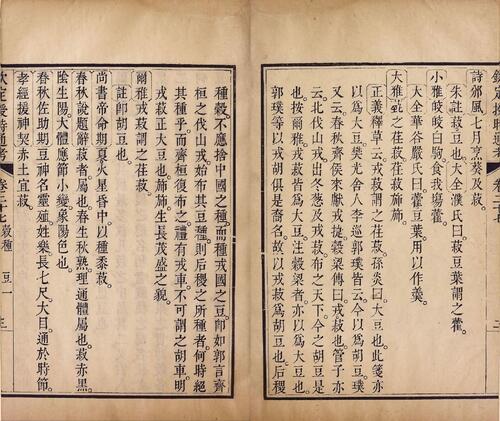 詩豳風七月烹葵及菽。
朱註菽豆也。大全濮氏曰菽豆葉謂之藿。
小雅皎皎白駒食我場藿
大全華谷嚴氏曰藿豆葉用以作羹。
大雅蓺之荏菽荏菽旆旆。
正義釋草云。戎菽謂之荏菽。孫炎曰。大豆也。此箋亦
以爲大豆樊光舍人李巡郭璞皆云。今以爲胡豆。璞
又云。春秋齊侯來獻戎捷穀梁傳曰。戎菽也。管子亦
云。北伐山戎出冬葱及戎菽布之天下。今之胡豆是
也。按爾雅戎菽皆爲大豆。注穀梁者亦以爲大豆也。
郭璞等以戎胡俱是裔名。故以戎菽爲胡豆也后稷
種穀。不應捨中國之種。而種戎國之豆。卽如郭言齊
桓之伐山戎。始布其豆種。則后稷之所種者。何時絕
其種乎。而齊桓復布之。禮有戎車。不可謂之胡車。明
戎菽正大豆也。旆旆生長茂盛之貌。
爾雅戎菽謂之荏菽。
註卽胡豆也。
尚書帝命期夏火星昏中。以種黍菽。
春秋說題辭菽者。屬也。春生秋熟。理通體屬也。菽赤黑。
陰生陽。大體應節。小變象陽色也。
春秋佐助期豆神名靈殖姓樂。長七尺。大目通於時節。
孝經援神契赤土宜菽。
欽定授時通考
卷二十七
穀種 豆一
三